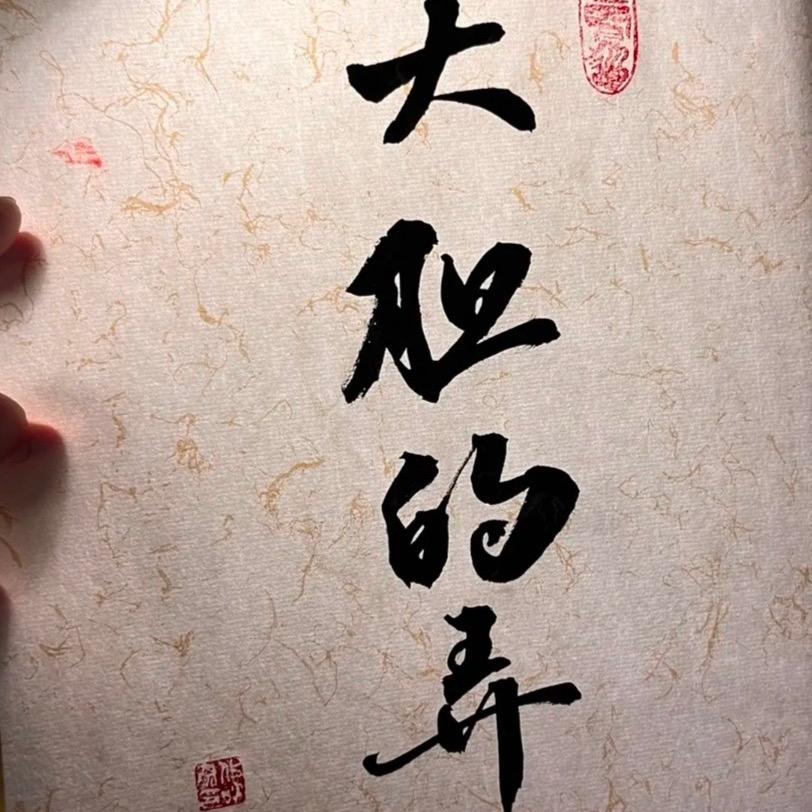 大胆的弄